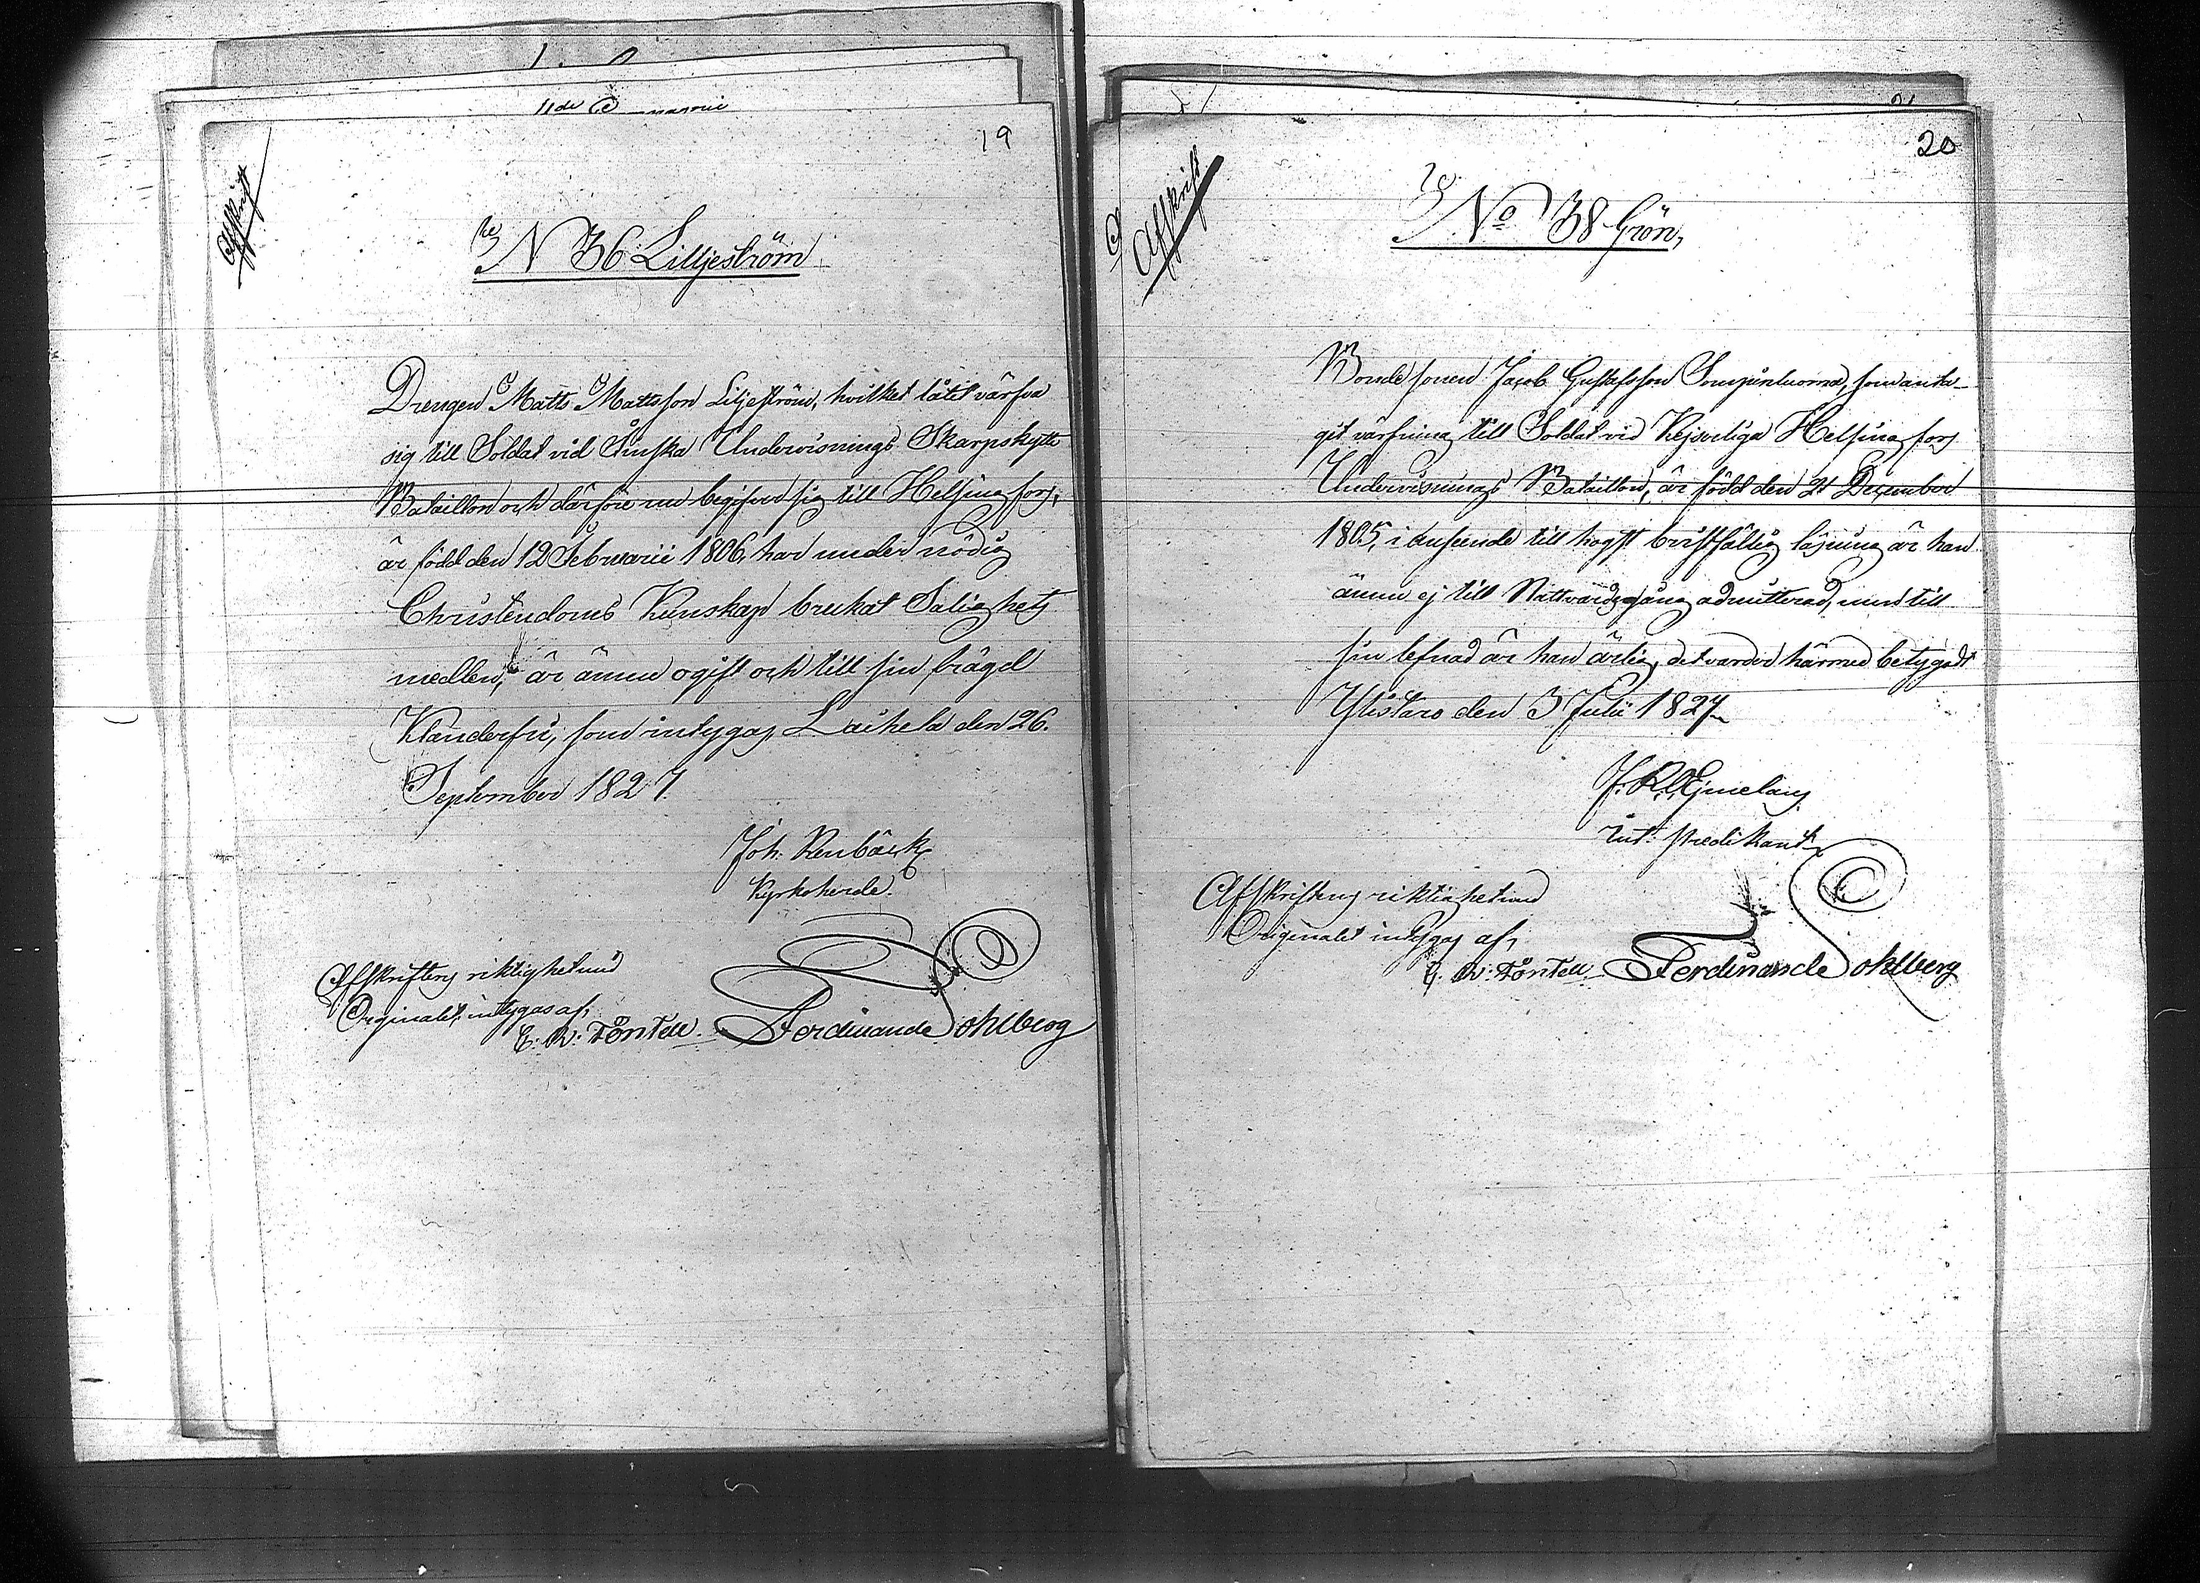 19
Afskrift
N 36 Liljeström
Drengen Matts Mattsson Liljeström, hvilket låtet värfva
sig till Soldat vid Finska Undervisnings Skarpskytte
Bataillon och därföre nu begifver sig till Helsingfors,
är född den 12 Februarii 1806, har under nödig
Christendoms Kunskap brukat Salighets
medlen, är ännu ogift och till sin frägd
Klanderfri, som intygas Laihela den 26.
September 1827.
Joh. Kenbäck
Kyrkoherde.
Afskriftens riktighet med
Orginalet, intygas af,
E. W. Föntell
Ferdinand Sohlberg
20
Afskrift
No 38 Grön,
Bonde sonen Jacob Gustafsson som anta-
git värfning till Soldat vid Kejserliga Helsingfors
Undervisnings Bataillon, är född den 21 December
1805, i anseende till högst bristfällig läsning är han
ännu ej till Nattvardsgång admitterad, men till
sin lefnad är han ärlig, det varder härmed betygadt
Ylistaro den 3 Julii 1827
predikant
Afskriftens riktighet med
Originalet intygas af,
E. W. Föntell
Ferdinand Sohlberg